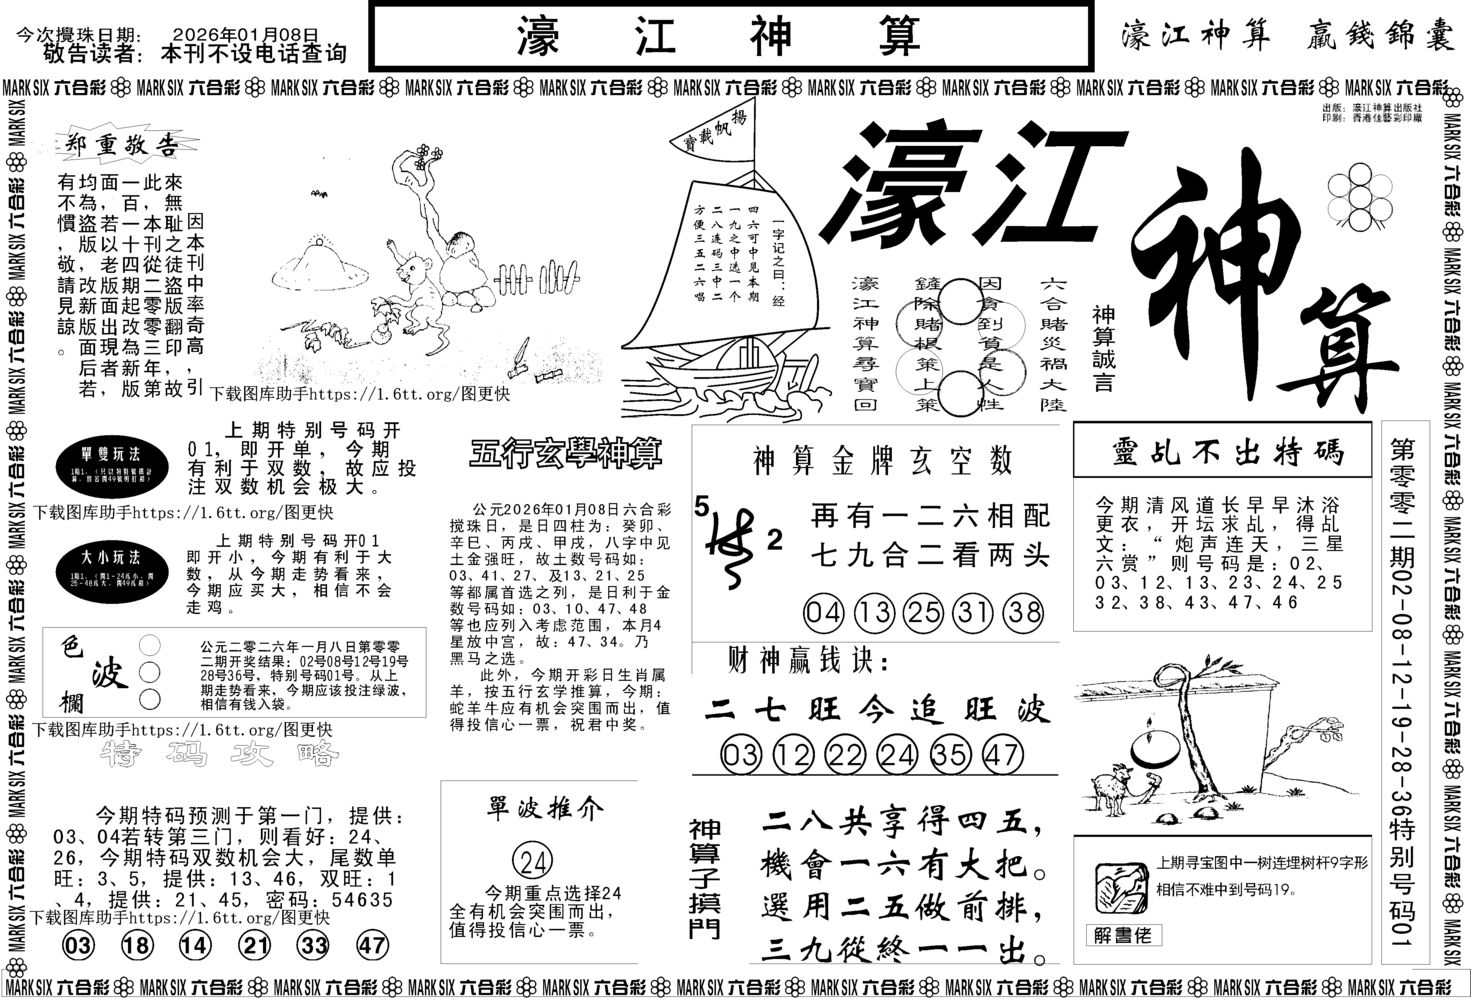 今次攪珠日期： 2026年01月08日
敬告读者：本刊不设电话查询
濠 江 神 算
濠江神算 贏錢錦囊
MARK SIX 六合彩 MARK SIX 六合彩 MARK SIX 六合彩 MARK SIX 六合彩 MARK SIX 六合彩 MARK SIX 六合彩 MARK SIX 六合彩 MARK SIX 六合彩 MARK SIX 六合彩 MARK SIX 六合彩 MARK SIX 六合彩
出版：濠江神算出版社
印刷：香港佳藝彩印廠
郑重敬告
因本刊中率奇高，引
來無耻之徒盜版翻印，故
此，本刊從二零零三年第
一百一十四期起改為新版
面，若以老版出現者，
均為盜版，改新版面后若
有不慣，敬請見諒。
揚帆載寶
一字记之曰：经
四六可中见本期
一九之中选一个
二八连码三中二
方便三五二六唱
濠江
神算
六合賭災禍大陸
因貪到貧是人性
鏟除賭根策上策
濠江神算尋寶回
神算誠言
下载图库助手https://1.6tt.org/图更快
單雙玩法
上期特别号码开
01，即开单，今期
有利于双数，故应投
注双数机会极大。
下载图库助手https://1.6tt.org/图更快
大小玩法
上期特别号码开01
即开小，今期有利于大
数，从今期走势看来，
今期应买大，相信不会
走鸡。
色波欄
公元二零二六年一月八日第零零
二期开奖结果：02号08号12号19号
28号36号，特别号码01号。从上
期走势看来，今期应该投注绿波，
相信有钱入袋。
下载图库助手https://1.6tt.org/图更快
特码攻略
今期特码预测于第一门，提供：
03、04若转第三门，则看好：24、
26，今期特码双数机会大，尾数单
旺：3、5，提供：13、46，双旺：1
、4，提供：21、45，密码：54635
下载图库助手https://1.6tt.org/图更快
03 18 14 21 33 47
五行玄學神算
公元2026年01月08日六合彩
搅珠日，是日四柱为：癸卯、
辛巳、丙戌、甲戌，八字中见
土金强旺，故土数号码如：
03、41、27、及13、21、25
等都属首选之列，是日利于金
数号码如：03、10、47、48
等也应列入考虑范围，本月4
星放中宫，故：47、34。乃
黑马之选。
此外，今期开彩日生肖属
羊，按五行玄学推算，今期：
蛇羊牛应有机会突围而出，值
得投信心一票，祝君中奖。
單波推介
24
今期重点选择24
全有机会突围而出，
值得投信心一票。
神算金牌玄空数
5
2
再有一二六相配
七九合二看两头
04 13 25 31 38
财神赢钱诀：
二七旺今追旺波
03 12 22 24 35 47
神算子摸門
二八共享得四五，
機會一六有大把。
選用二五做前排，
三九從終一一出。
靈乩不出特碼
今期清风道长早早沐浴
更衣，开坛求乩，得乩
文：“炮声连天，三星
六赏”则号码是：02、
03、12、13、23、24、25
32、38、43、47、46
上期寻宝图中一树连埋树杆9字形
相信不难中到号码19。
解書佬
第零零二期02-08-12-19-28-36特别号码01
MARK SIX 六合彩 MARK SIX 六合彩 MARK SIX 六合彩 MARK SIX 六合彩 MARK SIX 六合彩 MARK SIX 六合彩 MARK SIX 六合彩 MARK SIX 六合彩 MARK SIX 六合彩 MARK SIX 六合彩 MARK SIX 六合彩